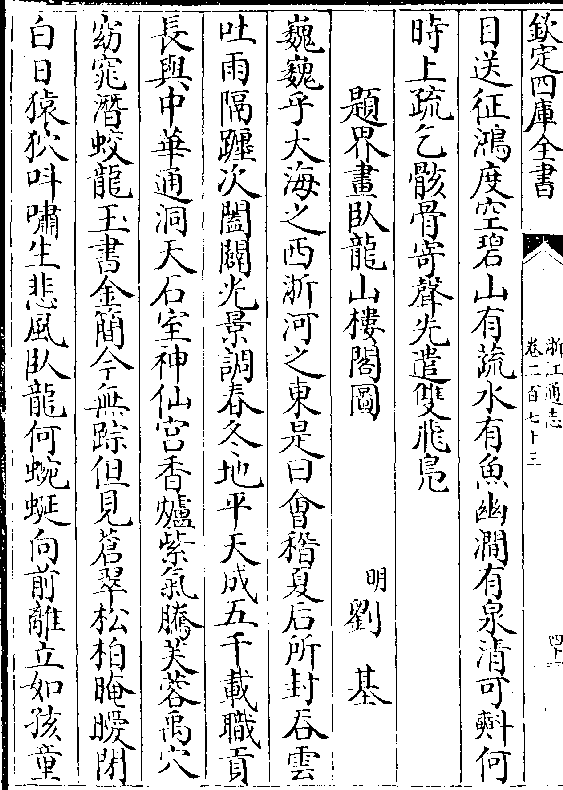 欽定四庫全書
浙江通志
卷二百七十三
四十二
目送征鴻度空碧山有蔬水有魚幽澗有泉清可㪺何
時上疏乞骸骨寄聲先遣雙飛凫
題界畫臥龍山樓閣圖
明劉基
巍巍乎大海之西浙河之東是曰會稽夏后所封吞雲
吐雨隔躔次闔闢光景調春冬地平天成五千載職貢
長與中華通洞天石室神仙宫香爐紫氣騰芙蓉禹穴
窈窕潛蛟龍玉書金簡今無踪但見蒼翠松柏晻曖閉
白日猿狖呌嘯生悲風臥龍何蜿蜒向前離立如孩童